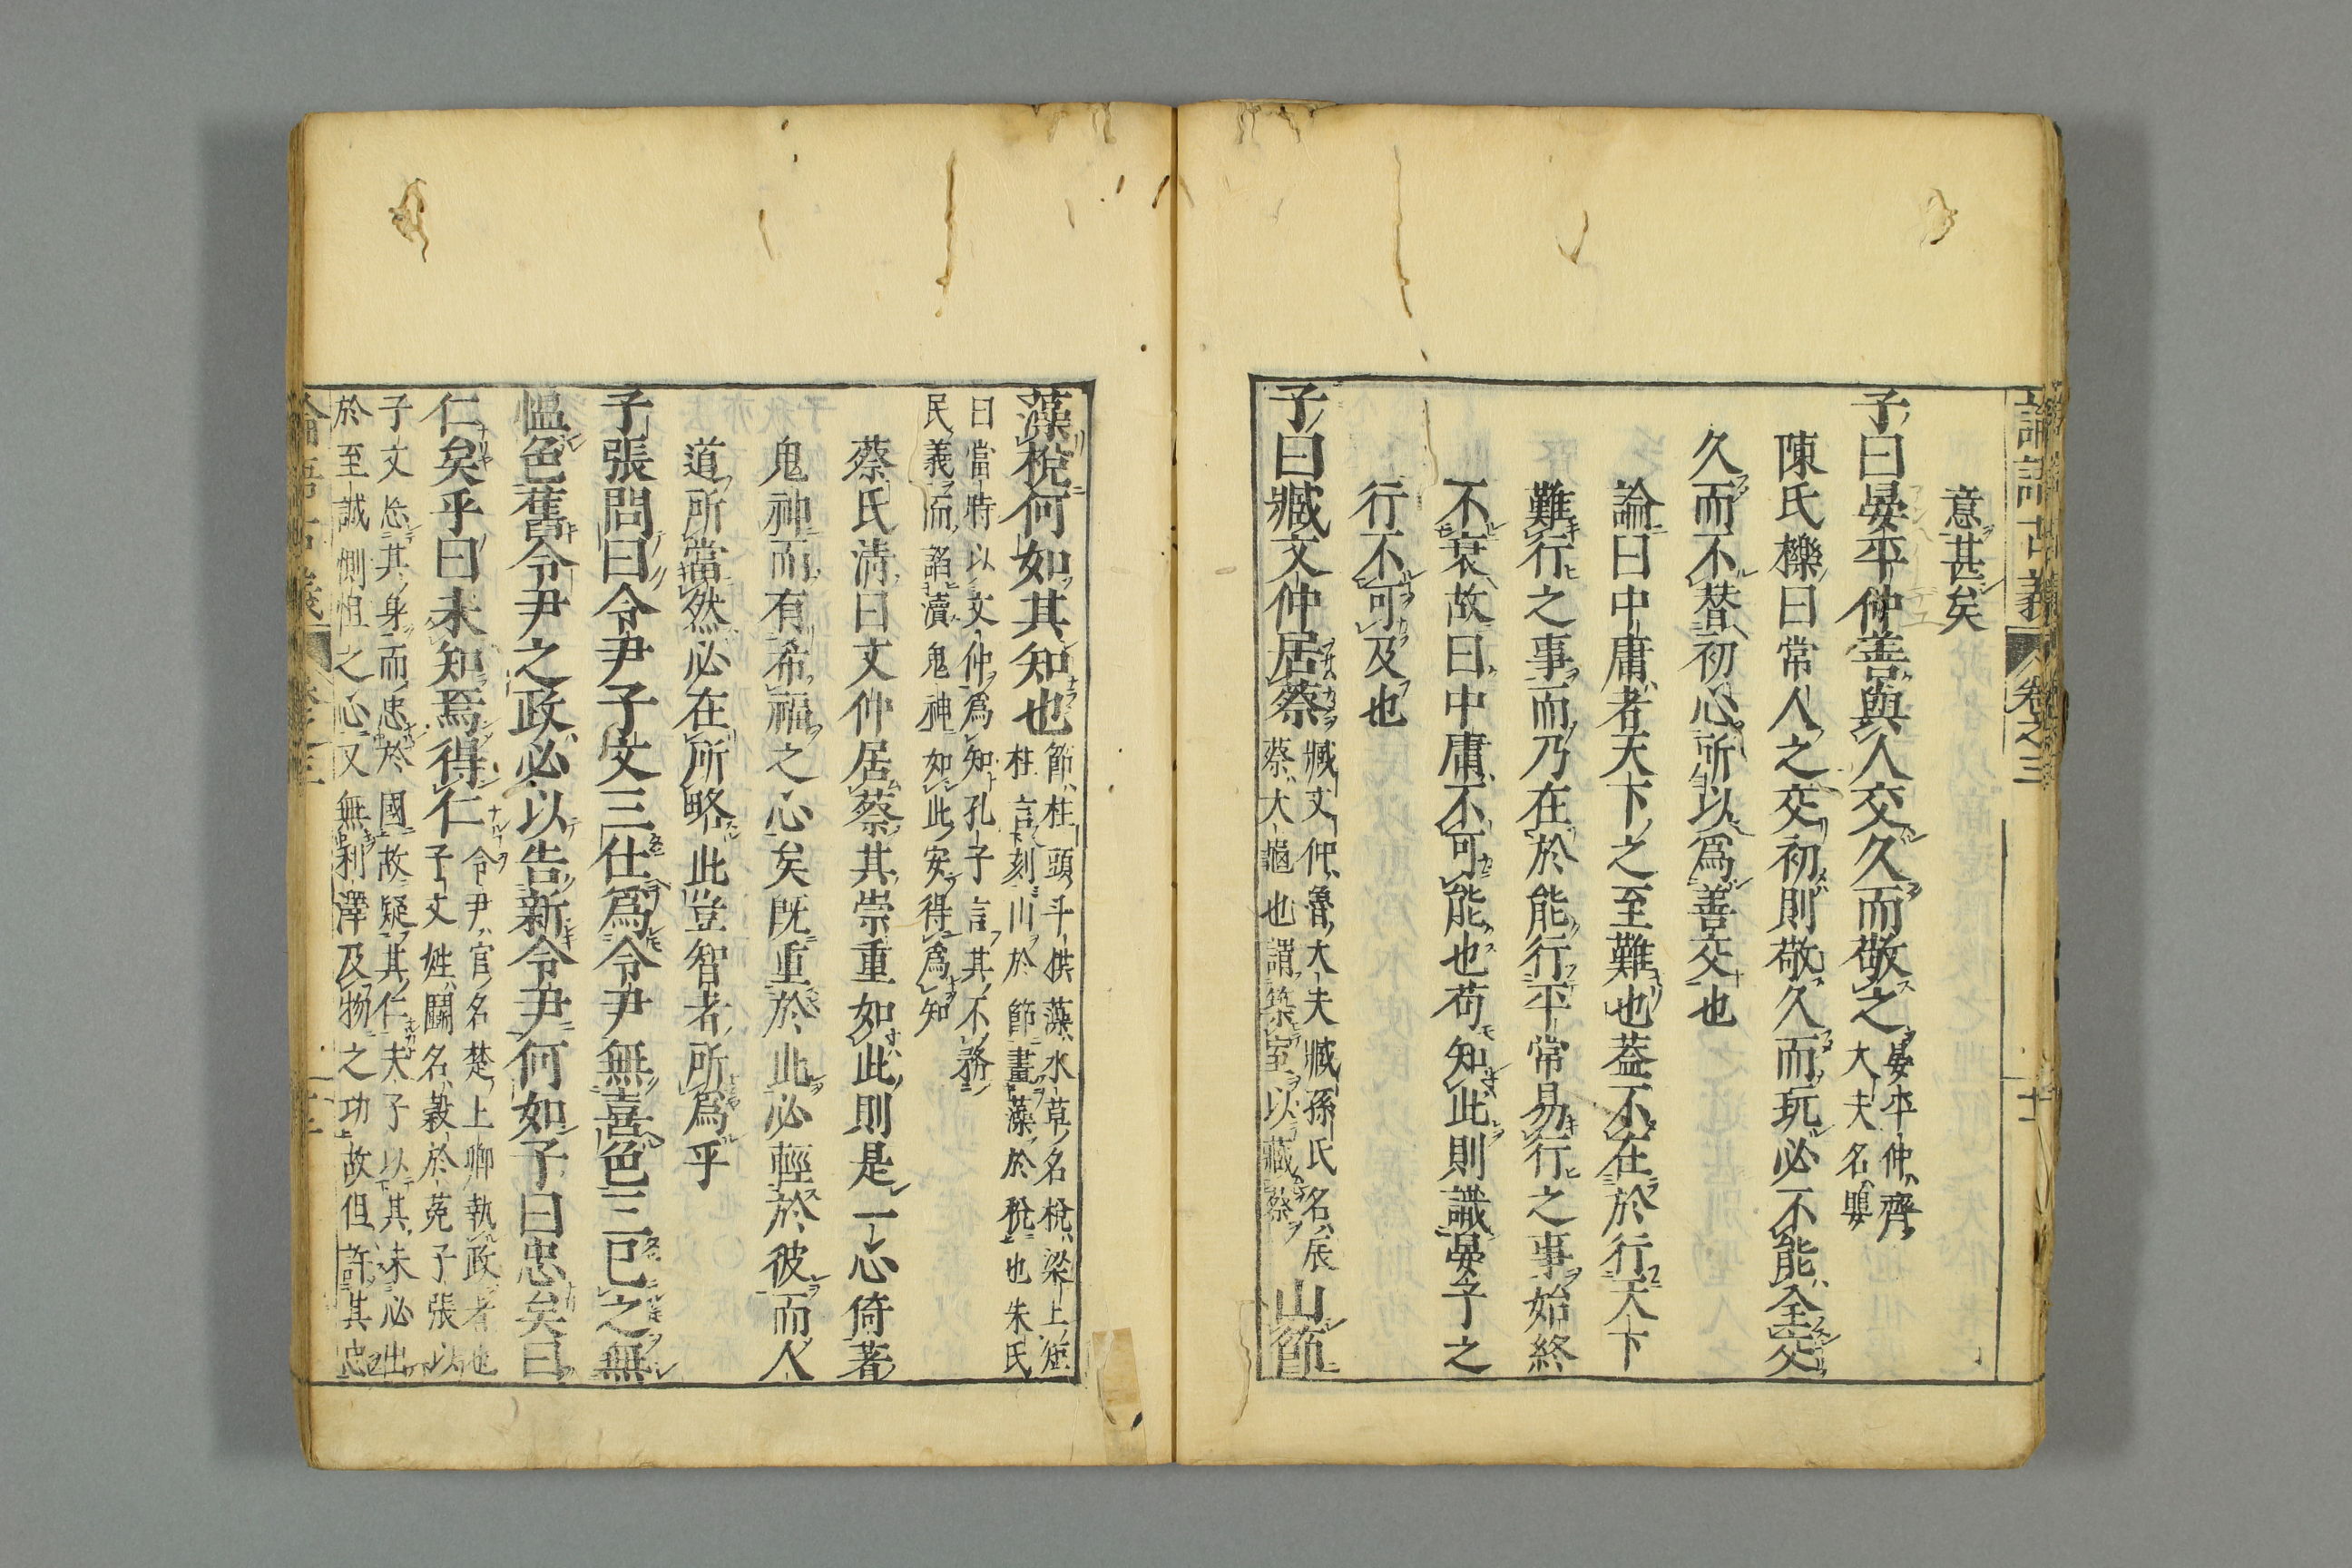 論語古義 卷之三 十一
意甚矣
子曰晏平仲善與人交久而敬之 晏平仲齊
大夫名嬰
陳氏櫟曰常人之交初則敬久而玩必不能全交
久而不替初心所以爲善交也
論曰中庸者天下之至難也葢不在於行天下
難行之事而乃在於能行平常易行之事始終
不衰故曰中庸不可能也苟知此則識晏子之
行不可及也
子曰臧文仲居蔡 臧文仲魯大夫臧孫氏名辰
蔡大龜也謂築室以藏蔡 山節
藻梲何如其知也 節柱頭斗栱藻水草名梲梁上短
柱言刻山於節畫藻於梲也朱氏
曰當時以文仲爲知孔子言其不務
民義而諂瀆鬼神如此安得爲知
蔡氏淸曰文仲居蔡其崇重如此則是一心倚著
鬼神而有希福之心矣既重於此必輕於彼而人
道所當然必在所略此豈智者所爲乎
子張問曰令尹子文三仕爲令尹無喜色三已之無
慍色舊令尹之政必以告新令尹何如子曰忠矣曰
仁矣乎曰未知焉得仁 令尹官名楚上卿執政者也
子文姓鬭名穀於菟子張以
子文忘其身而忠於國故疑其仁夫子以其未必出
於至誠惻怛之心又無利澤及物之功故但許其忠
論語古義 卷之三